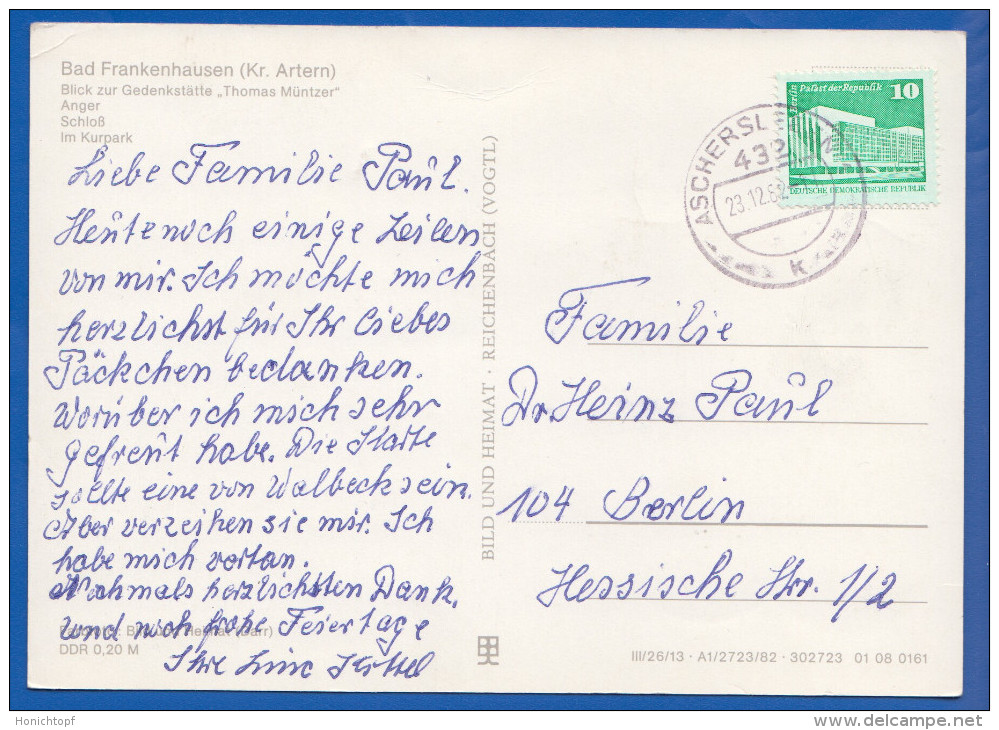 Bad Frankenhausen (Kr. Artern)
Blick zur Gedenkstätte „Thomas Müntzer"
Anger
Schloß
Im Kurpark
Liebe Familie Paul.
Heute noch einige Zeilen
von mir. Ich möchte mich
herzlichst für Ihr liebes
Päckchen bedanken.
Worüber ich mich sehr
gefreut habe. Die Karte
sollte eine von Walbeck sein.
Aber verzeihen sie mir. Ich
habe mich vertan.
Nochmals herzlichsten Dank.
und noch frohe Feiertage
Ihre
DDR 0,20 M
BILD UND HEIMAT · REICHENBACH (VOGTL)
Berlin Palast der Republik 10
DEUTSCHE DEMOKRATISCHE REPUBLIK
ASCHERSL
432
23.12.8
K
Familie
Dr. Heinz Paul
104 Berlin
Hessische Str. 1/2
III/26/13 · A1/2723/82 · 302723 01 08 0161
Honichtopf
delcampe.net